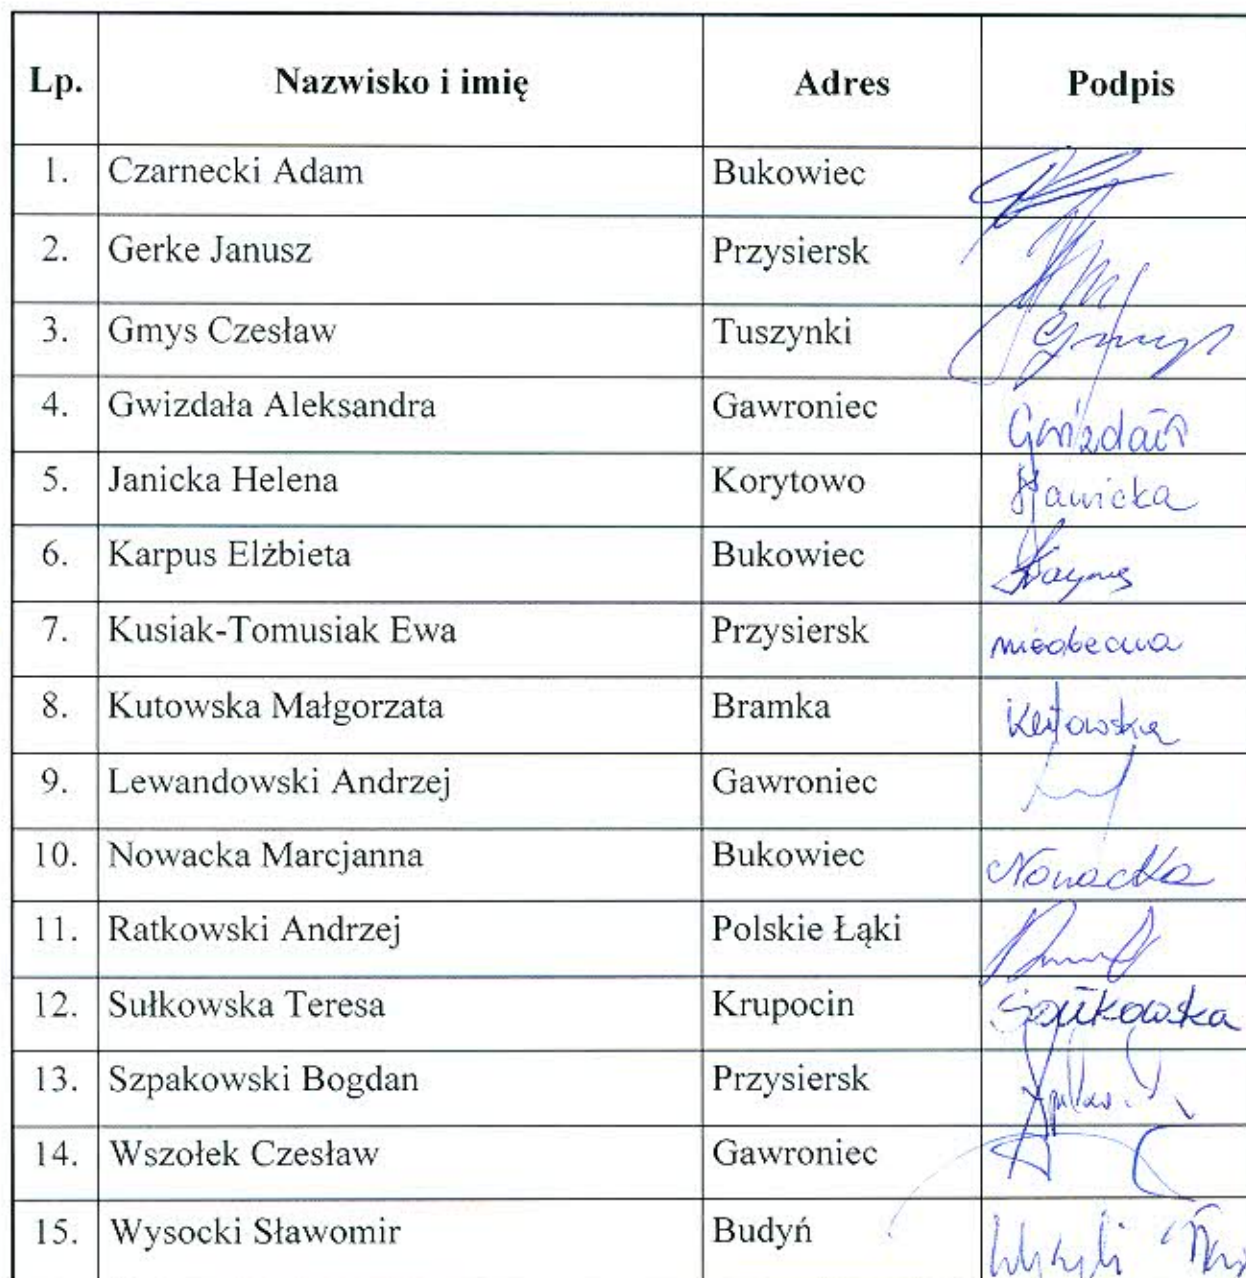 Lp. Nazwisko i imię Adres Podpis
1. Czarnecki Adam Bukowiec
2. Gerke Janusz Przysiersk
3. Gmys Czesław Tuszynki Gmys
4. Gwizdała Aleksandra Gawroniec Gwizdała
5. Janicka Helena Korytowo HJanicka
6. Karpus Elżbieta Bukowiec
7. Kusiak-Tomusiak Ewa Przysiersk nieobecna
8. Kutowska Małgorzata Bramka Kutowska
9. Lewandowski Andrzej Gawroniec
10. Nowacka Marcjanna Bukowiec Nowacka
11. Ratkowski Andrzej Polskie Łąki
12. Sułkowska Teresa Krupocin Sułkowska
13. Szpakowski Bogdan Przysiersk
14. Wszołek Czesław Gawroniec
15. Wysocki Sławomir Budyń